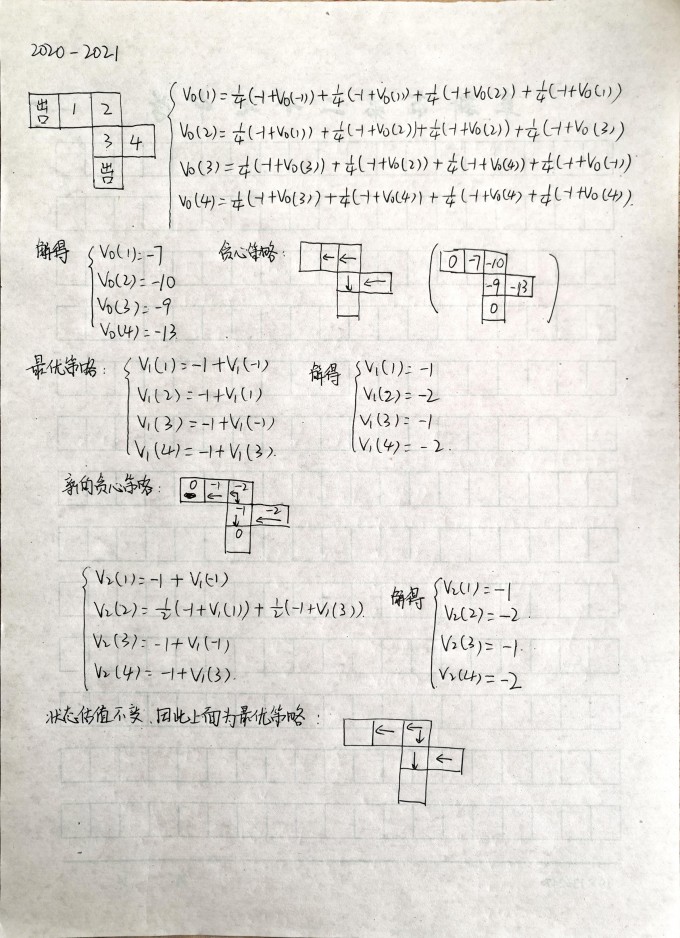 2020-2021
出口 1 2
3 4
出口
V₀(1)=¼(-1+V₀(-1))+¼(-1+V₀(1))+¼(-1+V₀(2))+¼(-1+V₀(1))
V₀(2)=¼(-1+V₀(1))+¼(-1+V₀(2))+¼(-1+V₀(2))+¼(-1+V₀(3))
V₀(3)=¼(-1+V₀(3))+¼(-1+V₀(2))+¼(-1+V₀(4))+¼(-1+V₀(-1))
V₀(4)=¼(-1+V₀(3))+¼(-1+V₀(4))+¼(-1+V₀(4)+¼(-1+V₀(4)).
解得
V₀(1)=-7
V₀(2)=-10
V₀(3)=-9
V₀(4)=-13
贪心策略:
← ←
↓ ←
0 -7 -10
-9 -13
0
最优策略:
V₁(1)=-1+V₁(-1)
V₁(2)=-1+V₁(1)
V₁(3)=-1+V₁(-1)
V₁(4)=-1+V₁(3).
解得
V₁(1)=-1
V₁(2)=-2
V₁(3)=-1
V₁(4)=-2.
新的贪心策略:
0 -1 -2
-1 -2
0
V₂(1)=-1+V₁(-1)
V₂(2)=½(-1+V₁(1))+½(-1+V₁(3)).
V₂(3)=-1+V₁(-1)
V₂(4)=-1+V₁(3).
解得
V₂(1)=-1
V₂(2)=-2
V₂(3)=-1.
V₂(4)=-2
状态估值不变,因此上面为最优策略: